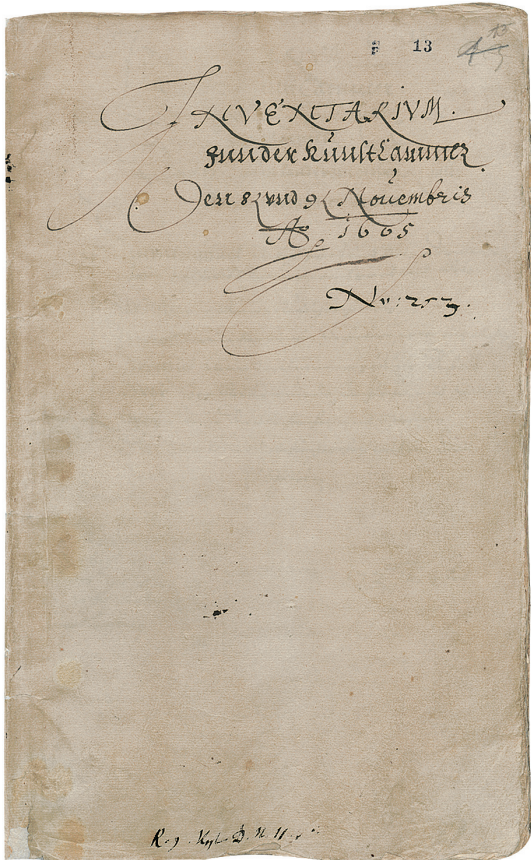 13
INVENTARIVM.
Jnn der Kunstkammer
Den 8 vnd 9 Nouembris
Ao 1665
No: 253.